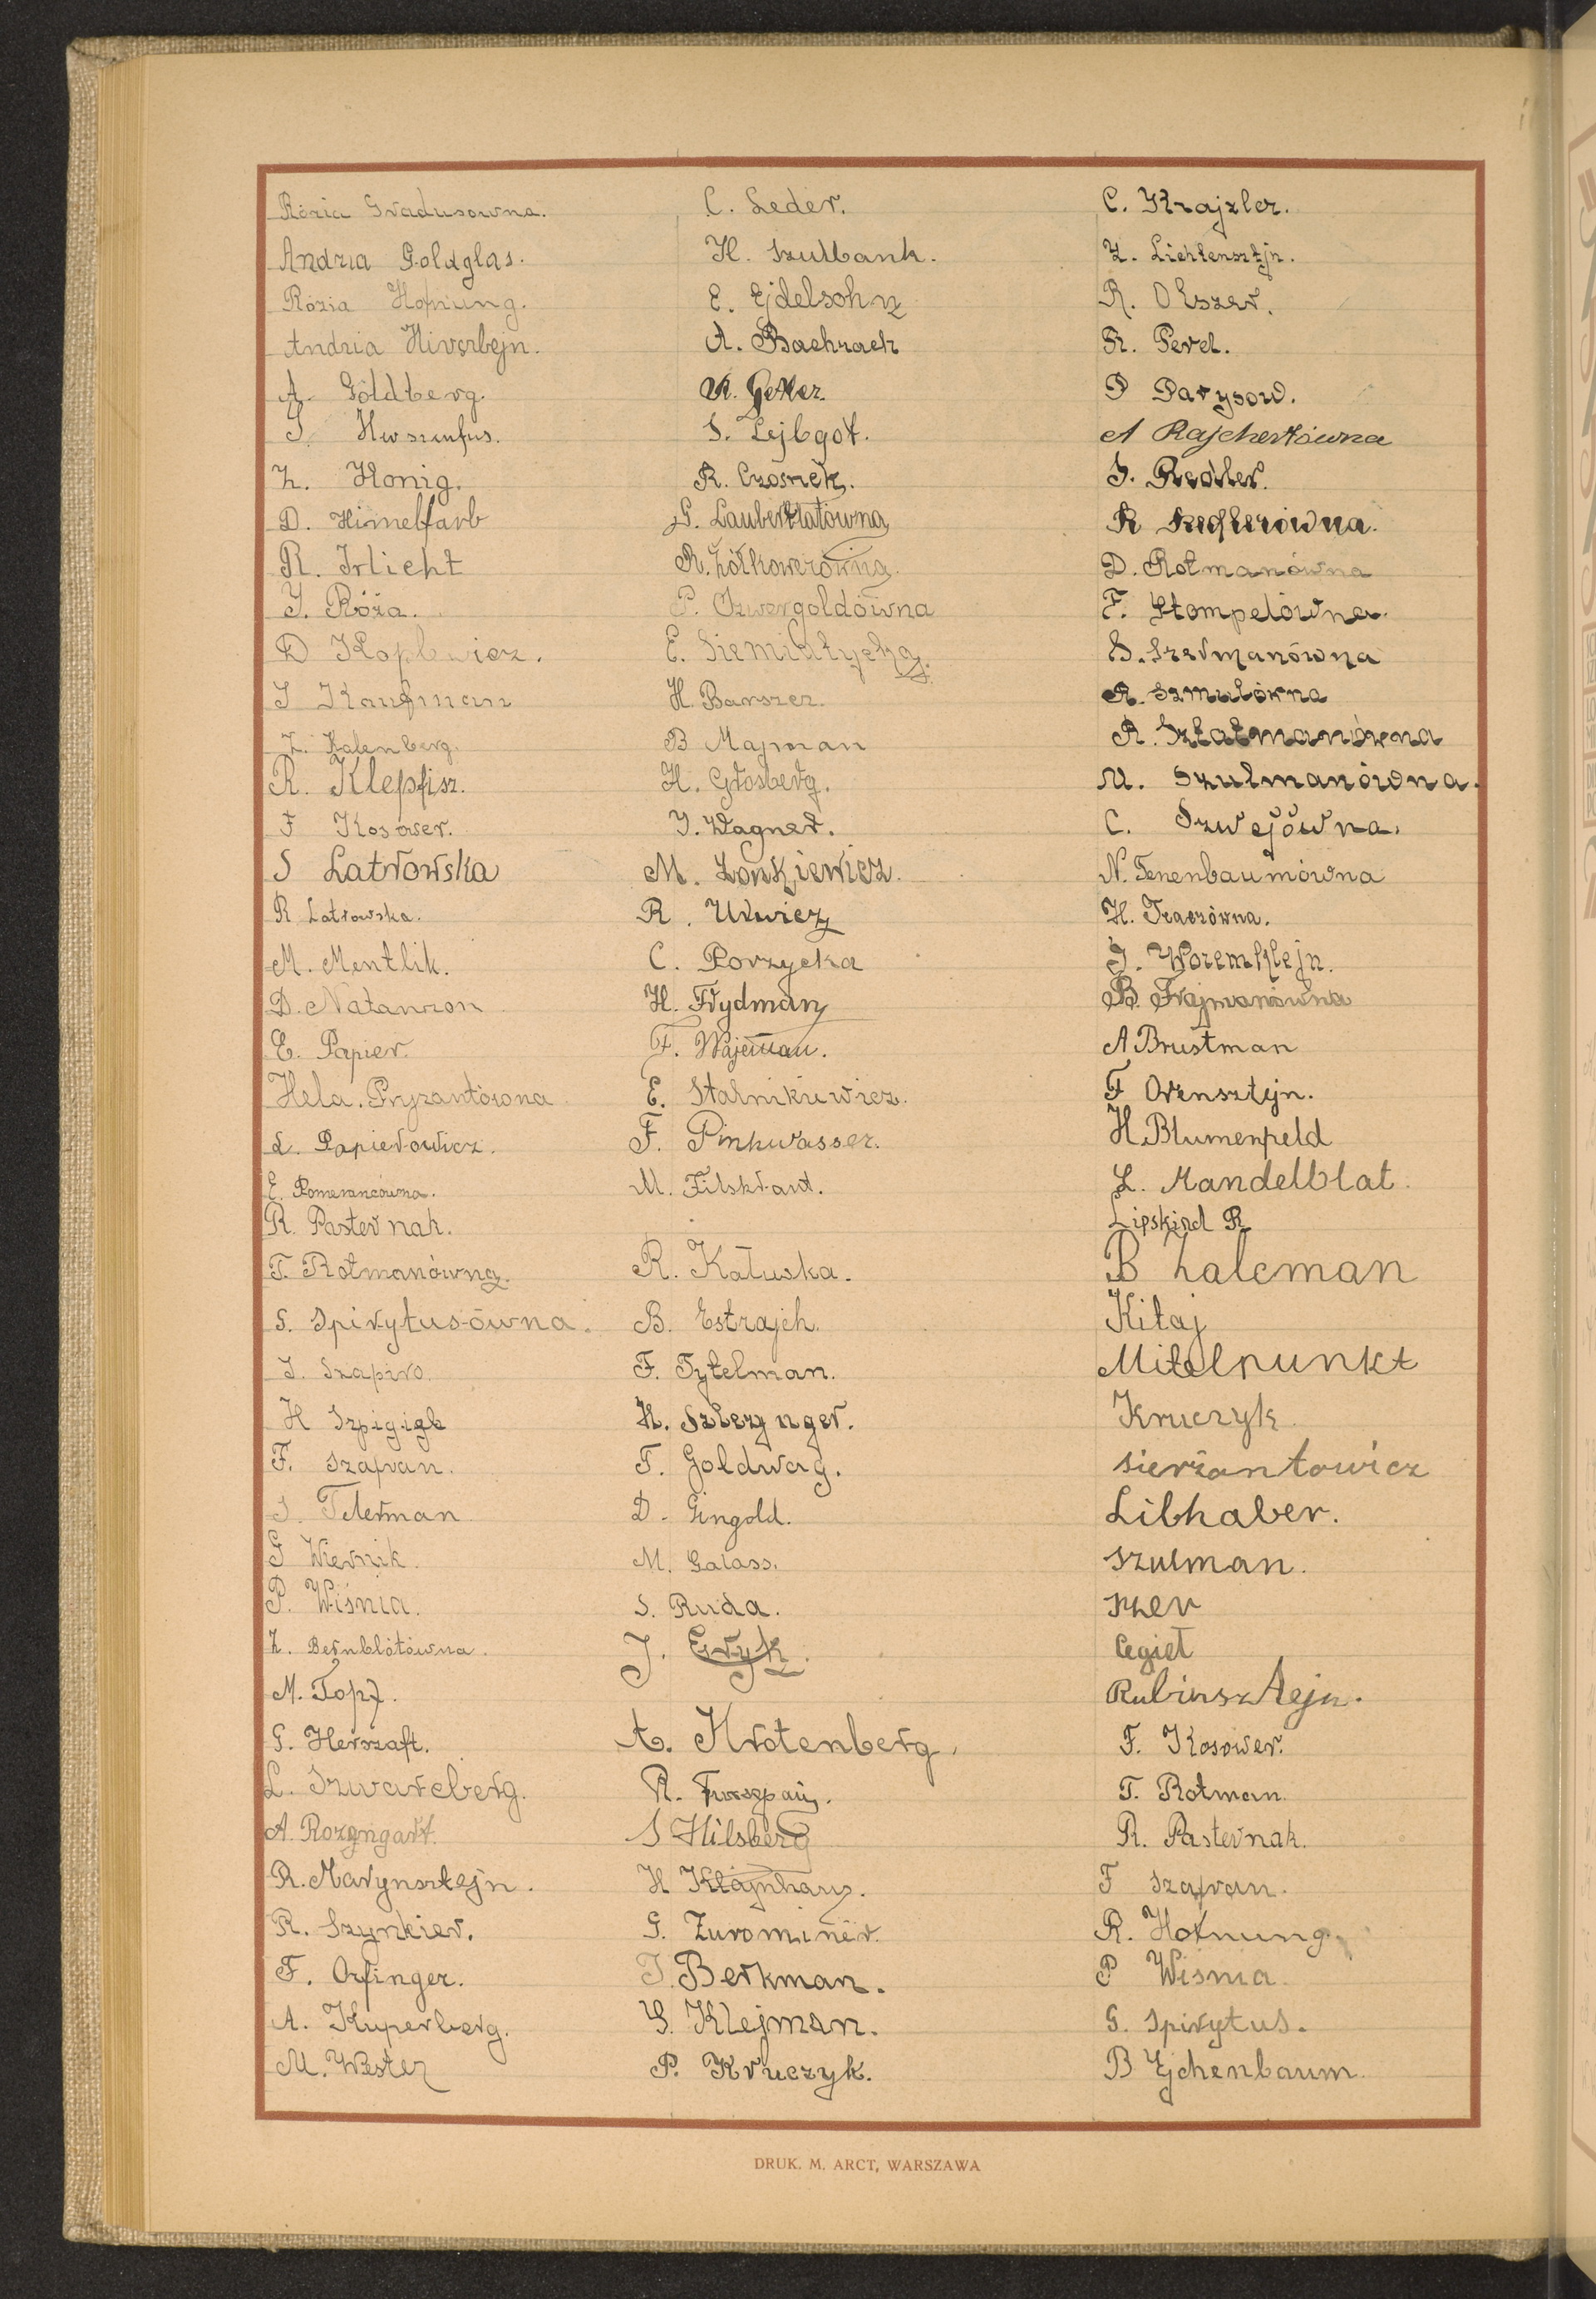 Rózia Gradusówna.
Andzia Goldglas.
Rózia Hofnung.
Andzia Hiverbejn.
A. Goldberg.
Z. Honig.
D. Himelfarb
R. Irlicht
J. Róża.
D Koplewicz.
I Kaufman
Z. Kalenberg.
R. Klepfisz.
F Kosower.
S Latrowska
R Latrowska.
M. Mentlik.
D. Natanzon
E. Papier.
Hela. Pryzantówna
L. Papierowicz.
E. Pomerancówna.
R. Pasternak.
T. Rotmanówna.
S. Spirytusówna.
I. Szapiro.
H Szpigigl
F. Szafran.
S. Telerman
G Wiernik.
P. Wiśnia.
Z. Bernblótówna.
M. Topf.
G. Herszaft.
L. Szwarcberg.
A. Rozengart.
R. Marynsztejn.
R. Szynkier.
F. Orfinger.
A. Kuperberg.
M. Wester
C. Leder.
H. Szulbank.
E. Ejdelsohn
A. Bachrach
S. Lejbgot.
R. Czosnek.
R. Żółkowerówna.
P. Czwergoldówna
E. Siemiatycka.
H. Barszcz.
B Majman
H. Grosberg.
J. Wagner.
M. Zonkiewicz.
R. Urwicz
C. Porzycka
H. Frydman
F. Wajeman.
E. Stalnikiewicz.
F. Pinkwasser.
M. Filskraut.
R. Kałuska.
B. Estrajch.
F. Tytelman.
H. Szlezynger.
T. Goldwag.
D. Gingold.
M. Galass.
S. Ruda.
J. Eryk.
A. Krotenberg.
S Hilsberg
H Kłajnhauz.
G. Żurominer.
I. Berkman.
G. Klejman.
P. Kruczyk.
C. Krajzler.
Z. Lichtensztjn.
R. Olszer.
R. Perel.
P Parysow.
A Rajchertówna
S. Redler.
D. Rotmanówna
F. Stompelówna.
S. Szermanówna
R. Szmulówna
R. Sztatmanówna
M. Szulmanówna.
C. Szwejówna.
N. Tenenbaumówna
H. Traczówna.
J. Woremklejn.
B. Frajmanówna
A Brustman
F Orensztejn.
H. Blumenfeld
L. Mandelblat.
Lipskind R
B Lalcman
Kitaj
Mitelpunkt
Kruczyk.
Sierżantowicz
Libhaber.
Szulman.
Szer
Cegieł
Rubinsztejn.
F. Kosower.
T. Rotman.
R. Pasternak.
F Szafran.
R. Hofnung.
P Wiśnia.
G. Spirytus.
B Ejchenbaum.
DRUK. M. ARCT, WARSZAWA